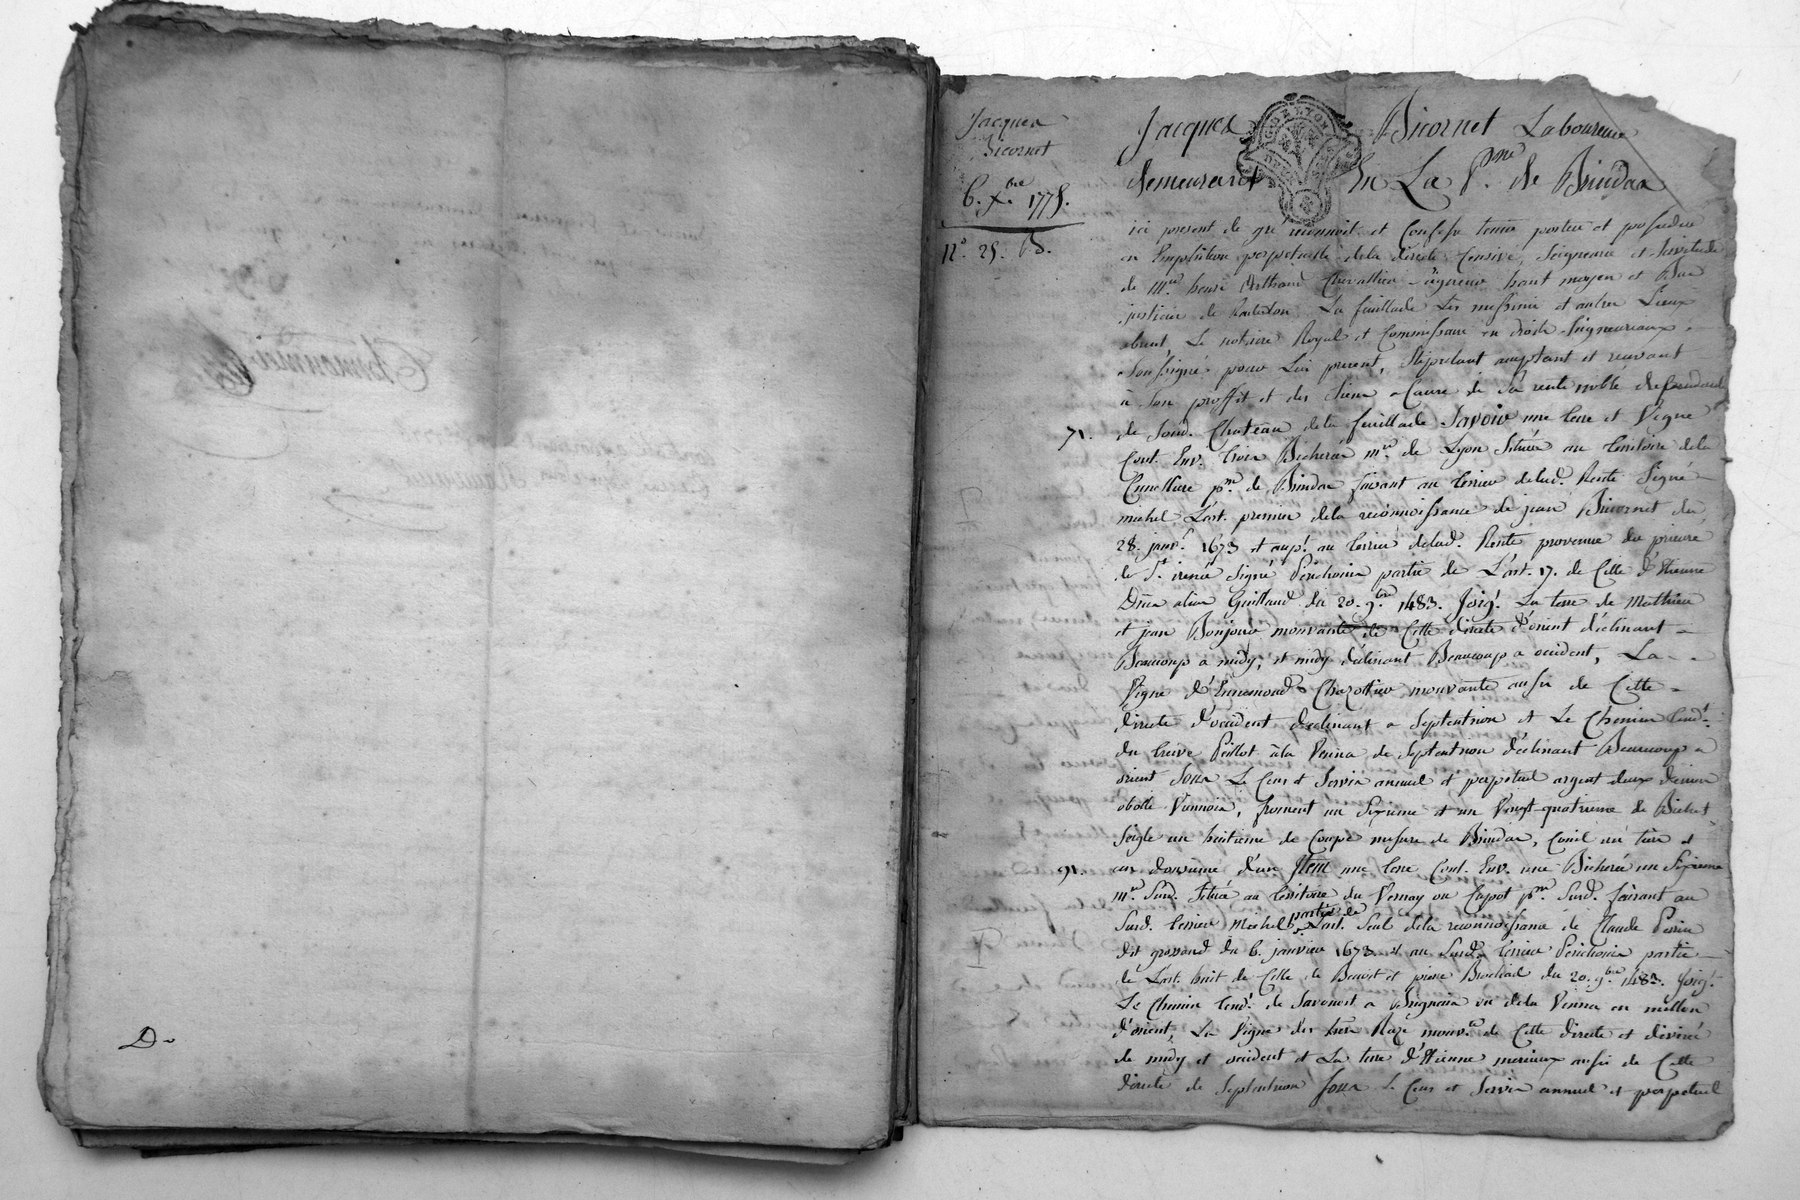 D.
Jacques
Bicornet
6. xbre 1775.
n.° 25. bd.
Jacques Bicornet Laboureur
demeurant En La P.sse de Brindas
ici present de gré reconnoit et Confesse tenir porter et posseder
en Emphiteose perpetuelle de la directe Censive, Seigneurie et Servitude
de M.re henri Arthaud Chevallier Seigneur haut moyen et Bas
justicier de La feuillade Les messimi et autres Lieux
absent, Le notaire Royal et Commissaire en droits Seigneuriaux
Soussigné pour Lui present, Stipulant acceptant et recevant
à Son proffit et des Siens a Cause de Sa rente noble
de Sond. Chateau de la feuillade Savoir une terre et Vigne
71.
Cont. Env. trois Bicherées m.re de Lyon Située au territoire de la
p.sse de Brindas faisant au terrier de lad. Rente Signé
michel L'art. premier de la reconnoissance de jean Bicornet du
28. janv.r 1673 et aup.t au terrier de lad. Rente provenue du prieuré
de S.t irenée Signé Penchonin partie de L'art. 17. de Celle d'Etienne
alias Guilland du 20. 9.bre 1483. Joig.t La terre de Mathieu
et jean Bonjour mouvante de Cette directe d'orient déclinant
Beaucoup a midy, et midy déclinant Beaucoup a occident, La
Vigne d'Ennemond mouvante aussi de Cette
directe d'occident declinant a Septentrion et Le Chemin tend.t
du treive Peillot à la Venna de Septentrion déclinant Beaucoup a
orient Sous Le Cens et Servis annuel et perpetuel argent deux deniers
obole Viennois, froment un Sixieme et un Vingt-quatrieme de Bichet
Seigle un huitieme de Coupe mesure de Brindas, Conil un tiers et
91.
un douzieme d'un Item une terre Cont. Env. une Bicherée un Sixieme
m.re Susd. Située au territoire du Vernay ou Capot p.sse Susd. faisant au
Susd. terrier Michel partie de L'art. Seul de la reconnoissance de Claude Perrin
dit grossond du 6. janvier 1673 et au Susd. terrier Penchonin partie
de L'art. huit de Celle de Benoit et pierre Brochard du 20. 9.bre 1483. Joig.t
Le Chemin tend.t de Savonost a Brignais ou de la Venna en millon
d'orient, La Vigne des hers Raze mouv.te de Cette directe et divisée
de midy et occident et La terre d'Etienne merieux aussi de Cette
directe de Septentrion Sous Le Cens et Servis annuel et perpetuel